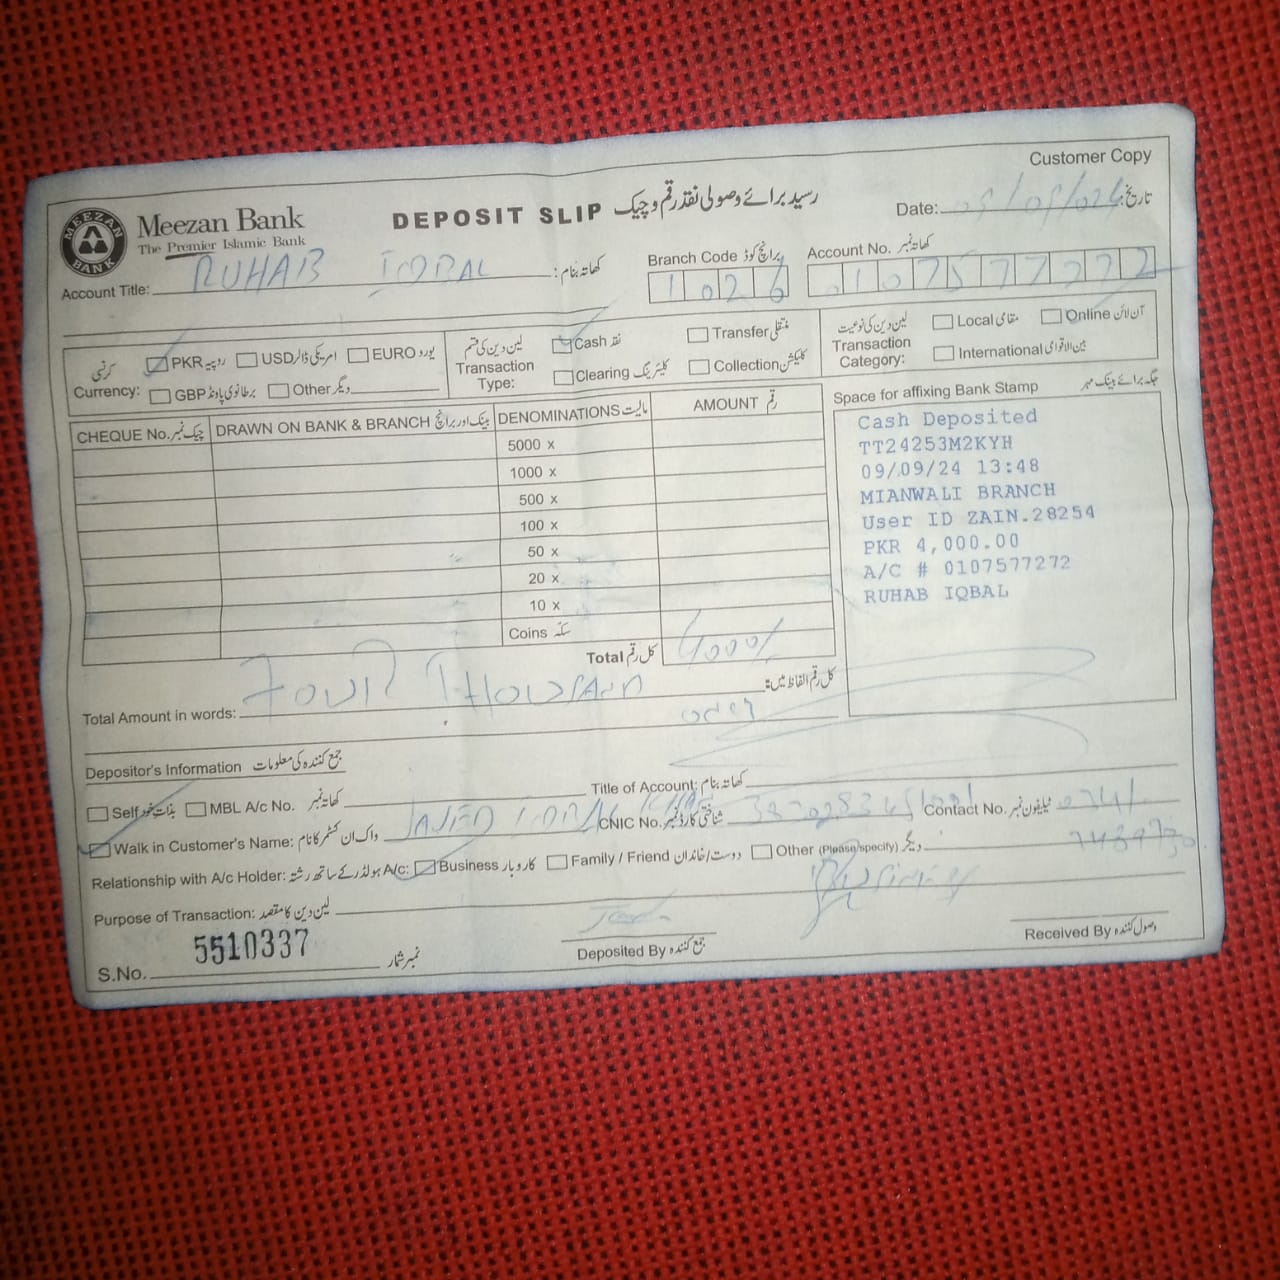 Customer Copy
MEEZAN BANK
Meezan Bank
The Premier Islamic Bank
DEPOSIT SLIP رسید برائے وصولی نقد رقم و چیک
Date: 09/09/024 تاریخ:
Account Title: RUHAB IQBAL کھاتہ بنام:
Branch Code برانچ کوڈ 1026
Account No. کھاتہ نمبر 0107577272
Currency: کرنسی
PKR روپیہ USD امریکی ڈالر EURO یورو
GBP برطانوی پاؤنڈ Other دیگر
Transaction Type: لین دین کی قسم
Cash نقد Transfer منتقلی
Clearing کلیئرنگ Collection کلیکشن
Transaction Category: لین دین کی نوعیت
Local مقامی Online آن لائن
International بین الاقوامی
CHEQUE No. چیک نمبر DRAWN ON BANK & BRANCH بینک اور برانچ DENOMINATIONS مالیت AMOUNT رقم
5000 x
1000 x
500 x
100 x
50 x
20 x
10 x
Coins سکہ
Total کل رقم 4000/
Space for affixing Bank Stamp جگہ برائے بینک مہر
Cash Deposited
TT24253M2KYH
09/09/24 13:48
MIANWALI BRANCH
User ID ZAIN.28254
PKR 4,000.00
A/C # 0107577272
RUHAB IQBAL
Total Amount in words: Four Thousand کل رقم الفاظ میں:
only
Depositor's Information جمع کنندہ کی معلومات
Self بذات خود MBL A/c No. کھاتہ نمبر Title of Account: کھاتہ بنام
Walk in Customer's Name: واک ان کسٹمر کا نام JAVED IQBAL CNIC No. شناختی کارڈ نمبر Contact No. ٹیلیفون نمبر
Relationship with A/c Holder: اکاؤنٹ ہولڈر کے ساتھ رشتہ A/c: Business کاروبار Family / Friend دوست/خاندان Other (Please specify) دیگر
Purpose of Transaction: لین دین کا مقصد
S.No. 5510337 نمبر شمار
Deposited By جمع کنندہ
Received By وصول کنندہ